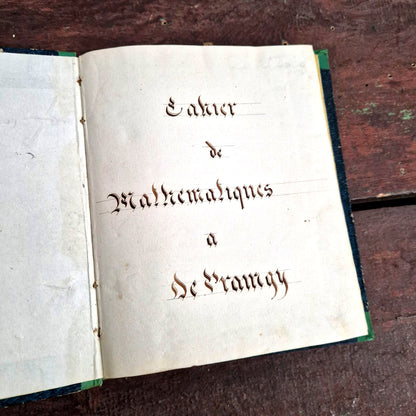 Cahier
de
Mathématiques
a
De Pramgy